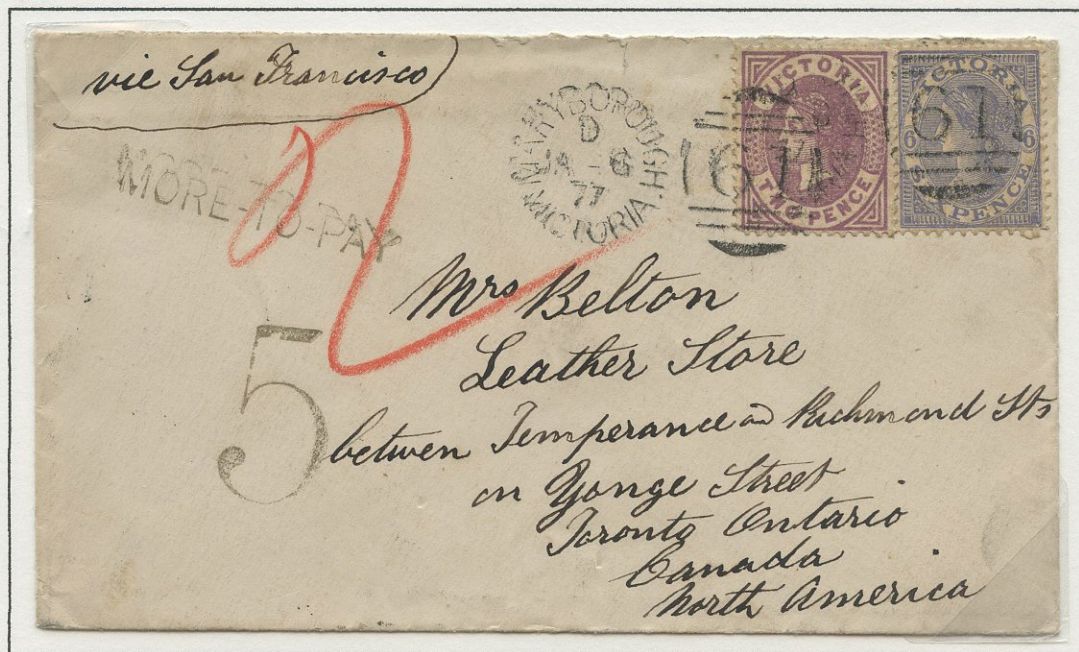 vie San Francisco
MORE-TO-PAY
MARYBOROUGH.
D
JA-6
77
VICTORIA.
VICTORIA
TWO PENCE
VICTORIA
6 6
PENCE
2
5
Mrs Belton
Leather Store
betwen Temperance and Richmond Sts
on Yonge Street
Toronto Ontario
Canada
North America